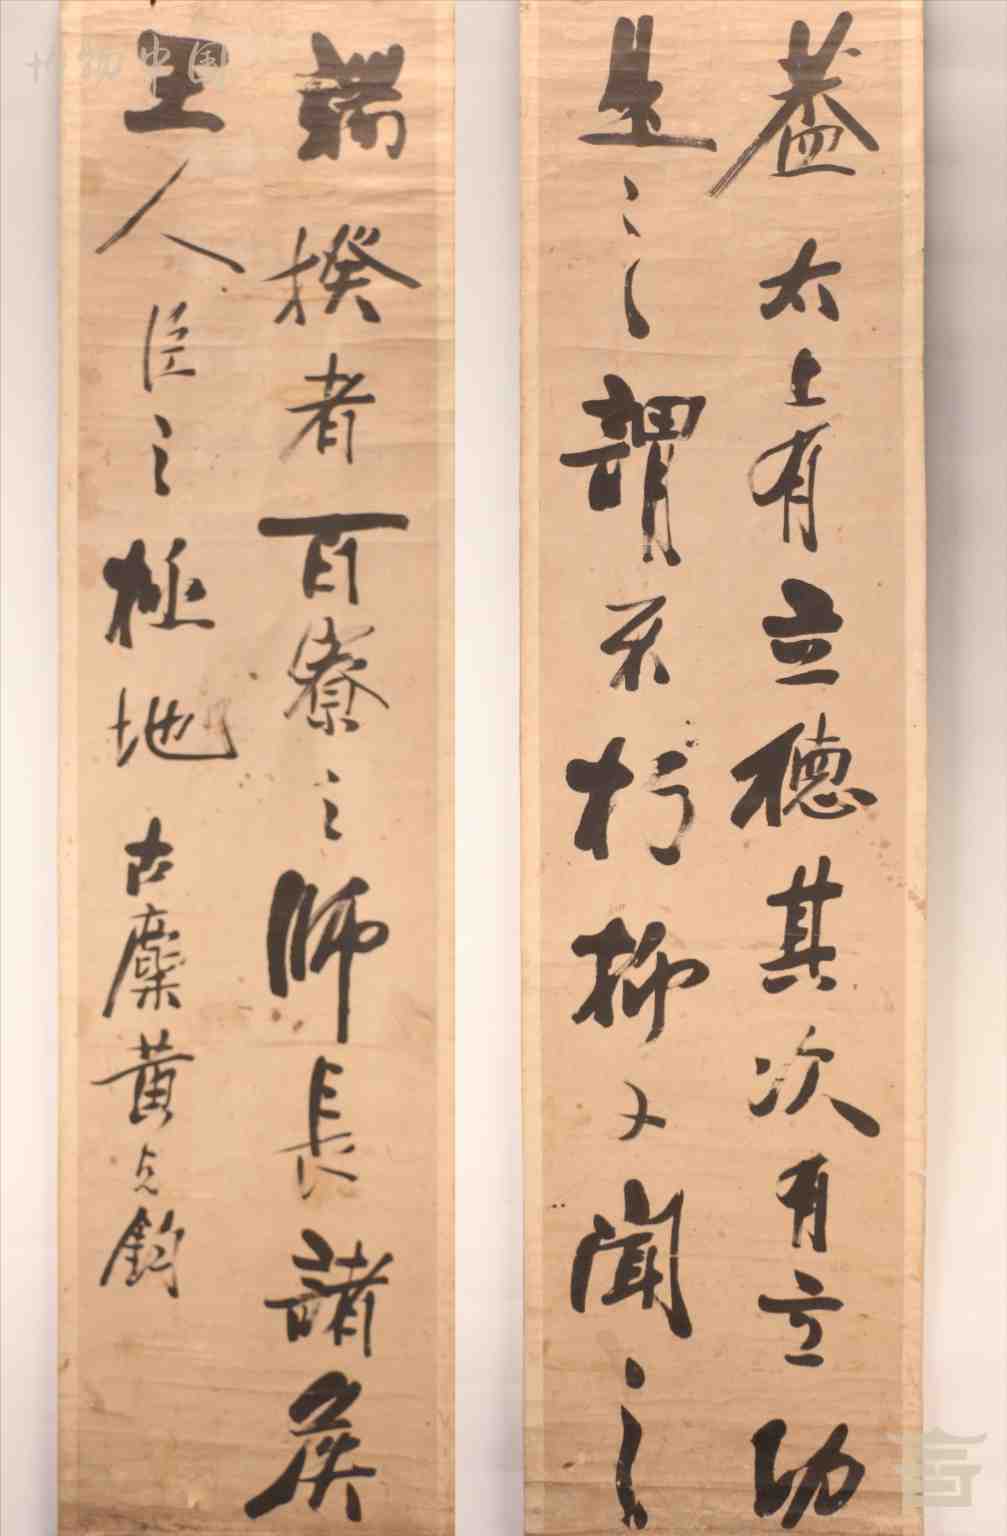 蓋太上有立德其次有立功
是之謂不朽抑又聞之
端揆者百寮之師長諸侯
王人臣之極地 古黃鈞
博物中国